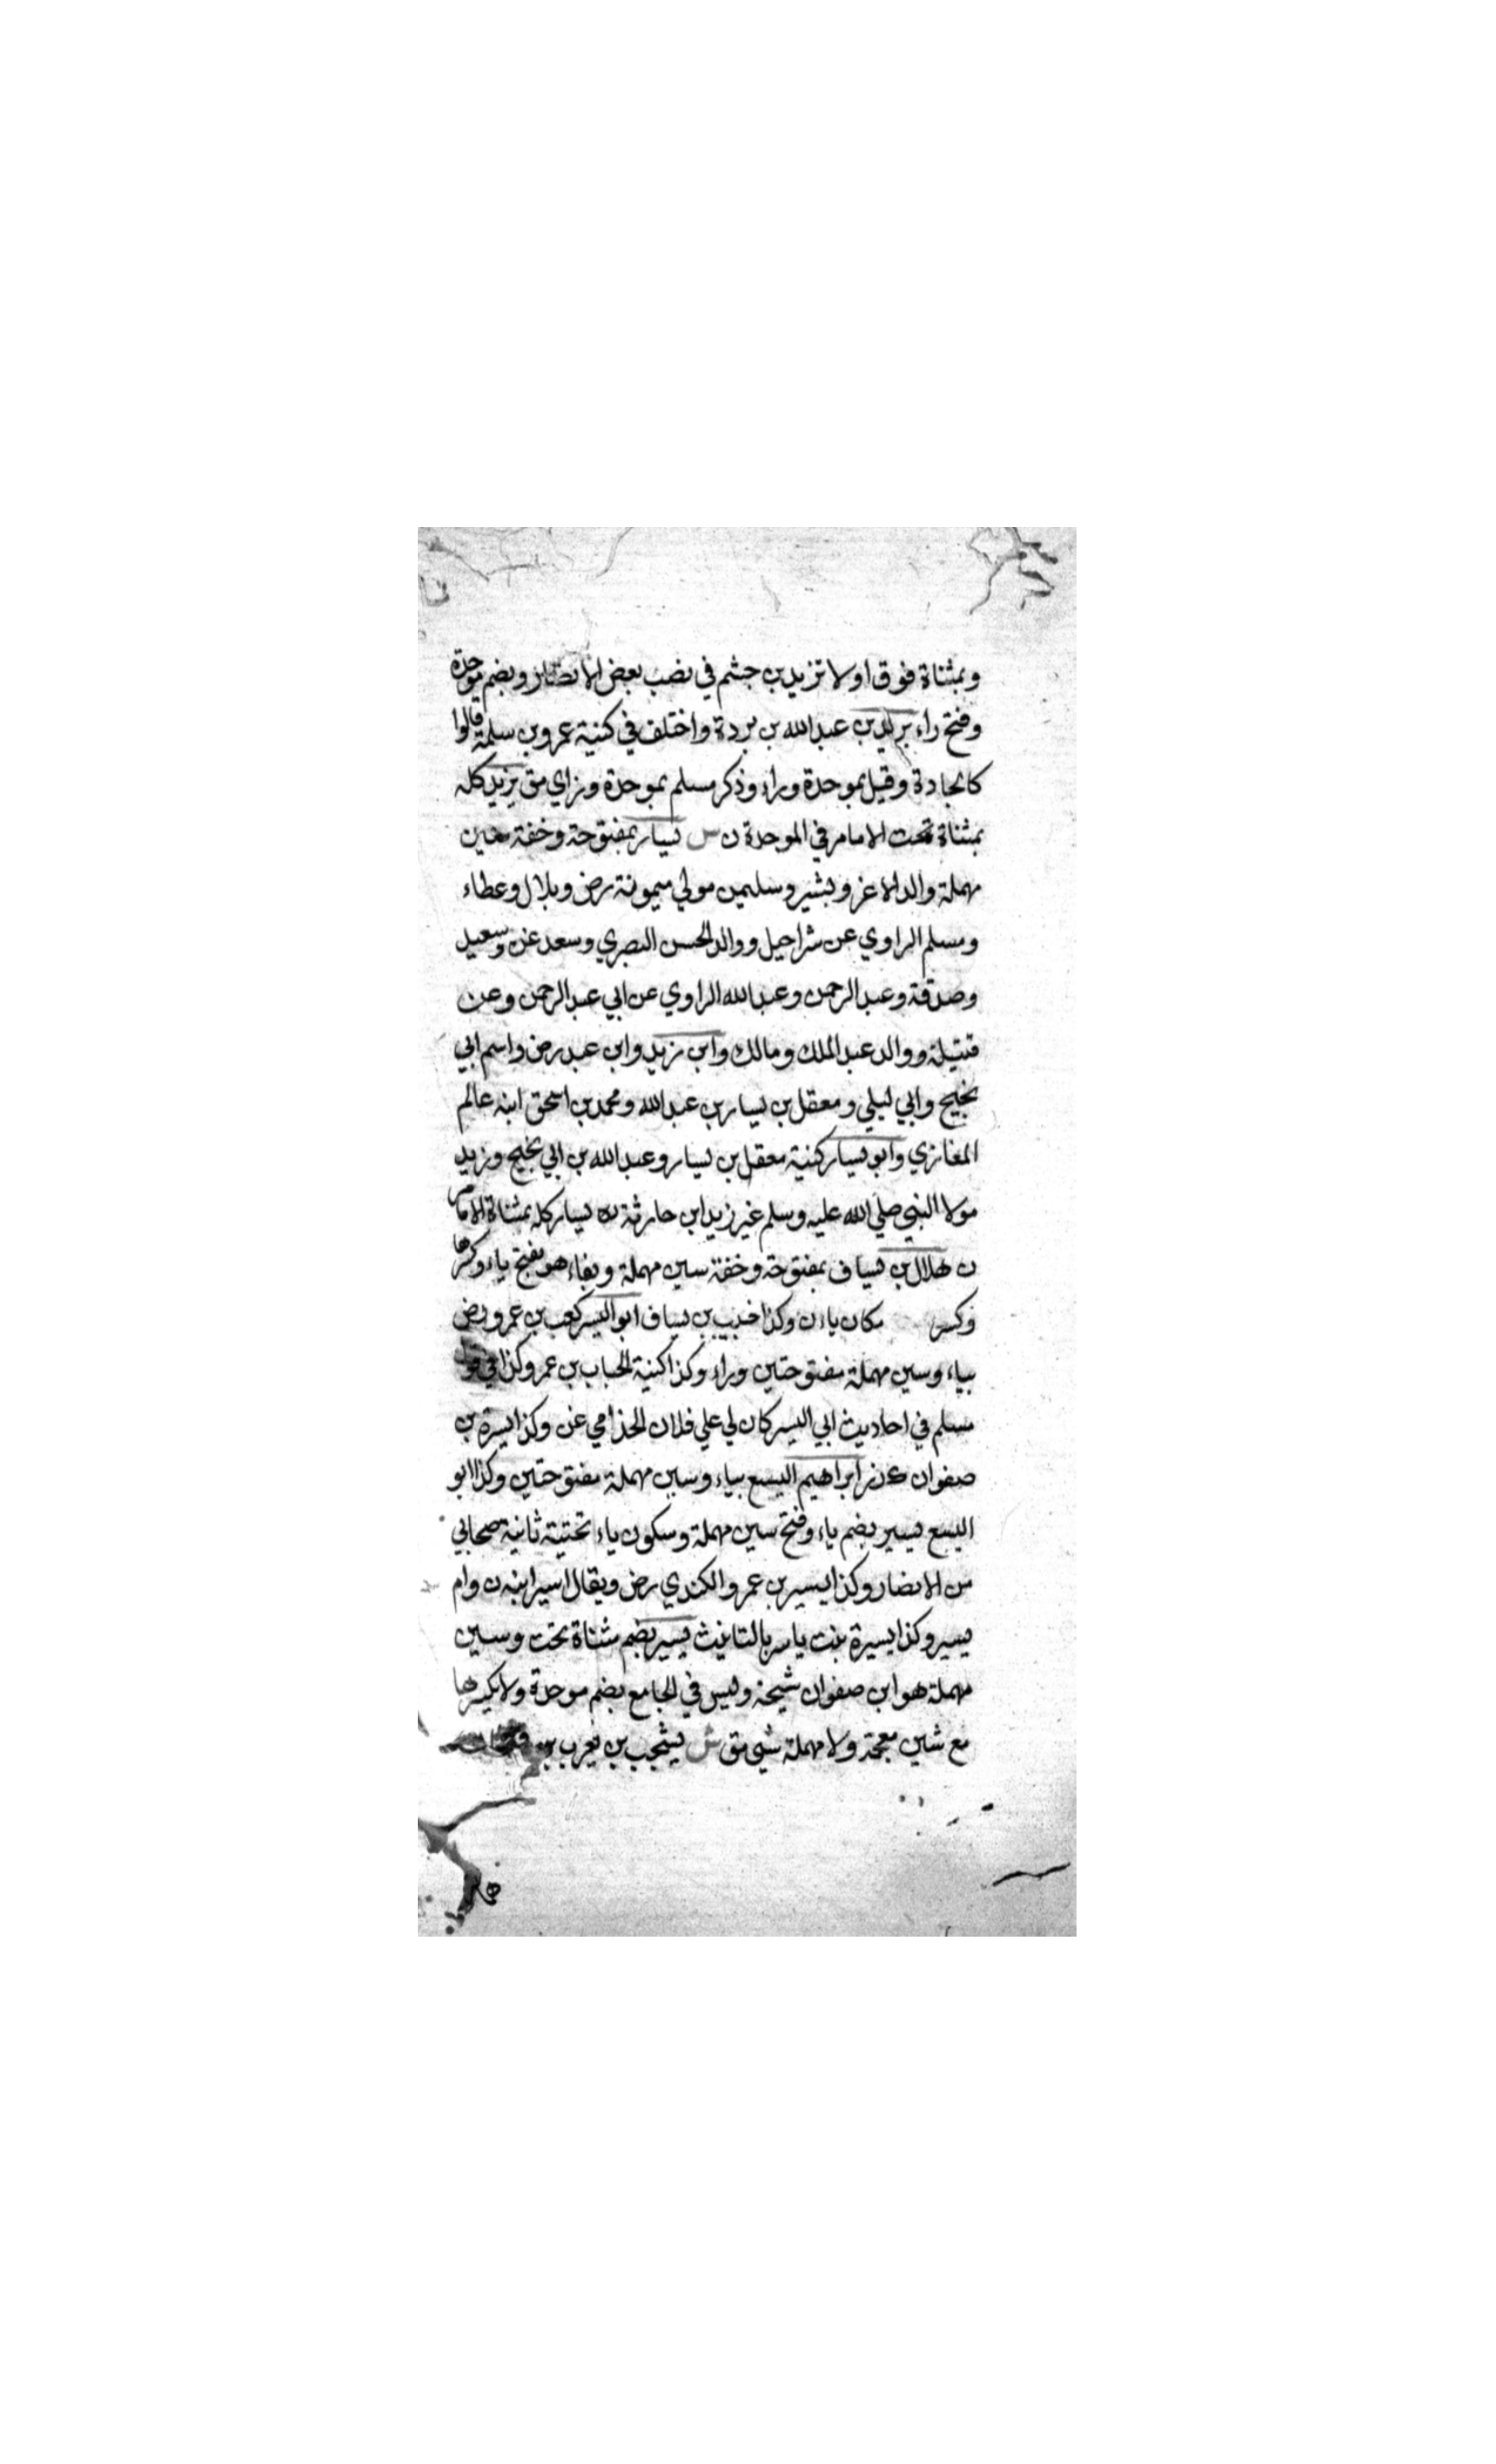 وبمثناة فوق اولا تزيد بن جشم في نصب بعض الانصار وبضم موحدة
وفتح راء بريد بن عبد الله بن بردة واختلف في كنية عمرو بن سلمة قالوا
كالجادة وقيل بموحدة وراء وذكر مسلم بموحدة وزاي مق يزيد كله
بمثناة تحت الا مامر في الموحدة ن س يسار بمفتوحة وخفة سين
مهملة والد الاغر وبشير وسليمن مولي ميمونة رض وبلال وعطاء
ومسلم الراوي عن شراحيل ووالد الحسن البصري وسعد عن وسعيد
وصدقة وعبد الرحمن وعبد الله الراوي عن ابي عبد الرحمن وعن
قتيلة ووالد عبد الملك ومالك وابن زيد وابن عبد رض واسم ابي
نجيح وابي ليلي ومعقل بن يسار بن عبد الله ومحمد بن اسحق ابنه عالم
المغازي وابو يسار كنية معقل بن يسار وعبد الله بن ابي نجيح وزيد
مولا النبي صلي الله عليه وسلم غير زيد ابن حارثة ن يسار كله بمثناة الا مامر
ن هلال بن يساف بمفتوحة وخفة سين مهملة وبفاء هو بفتح ياء وكسرها
وكسر مكان ياء ن وكذا خبيب بن يساف ابو اليسر كعب بن عمرو رض
بياء وسين مهملة مفتوحتين وراء وكذا كنية الحباب بن عمرو وكذا في
مسلم في احاديث ابي اليسر كان لي علي فلان الحذامي عن وكذا يسرة بن
صفوان ك ز ابراهيم اليسع بياء وسين مهملة مفتوحتين وكذا ابو
اليسع يسير بضم ياء وفتح سين مهملة وسكون ياء تحتية ثانية صحابي
من الانصار وكذا يسير بن عمرو الكندي رض ويقال اسير ابنه ن وام
يسير وكذا يسيرة بنت ياسر بالتانيث يسير بضم مثناة تحت وسين
مهملة هو ابن صفوان شيخه وليس في الجامع بضم موحدة ولا بكسرها
مع شين معجمة ولا مهملة شي مق ش يشجب بن يعرب